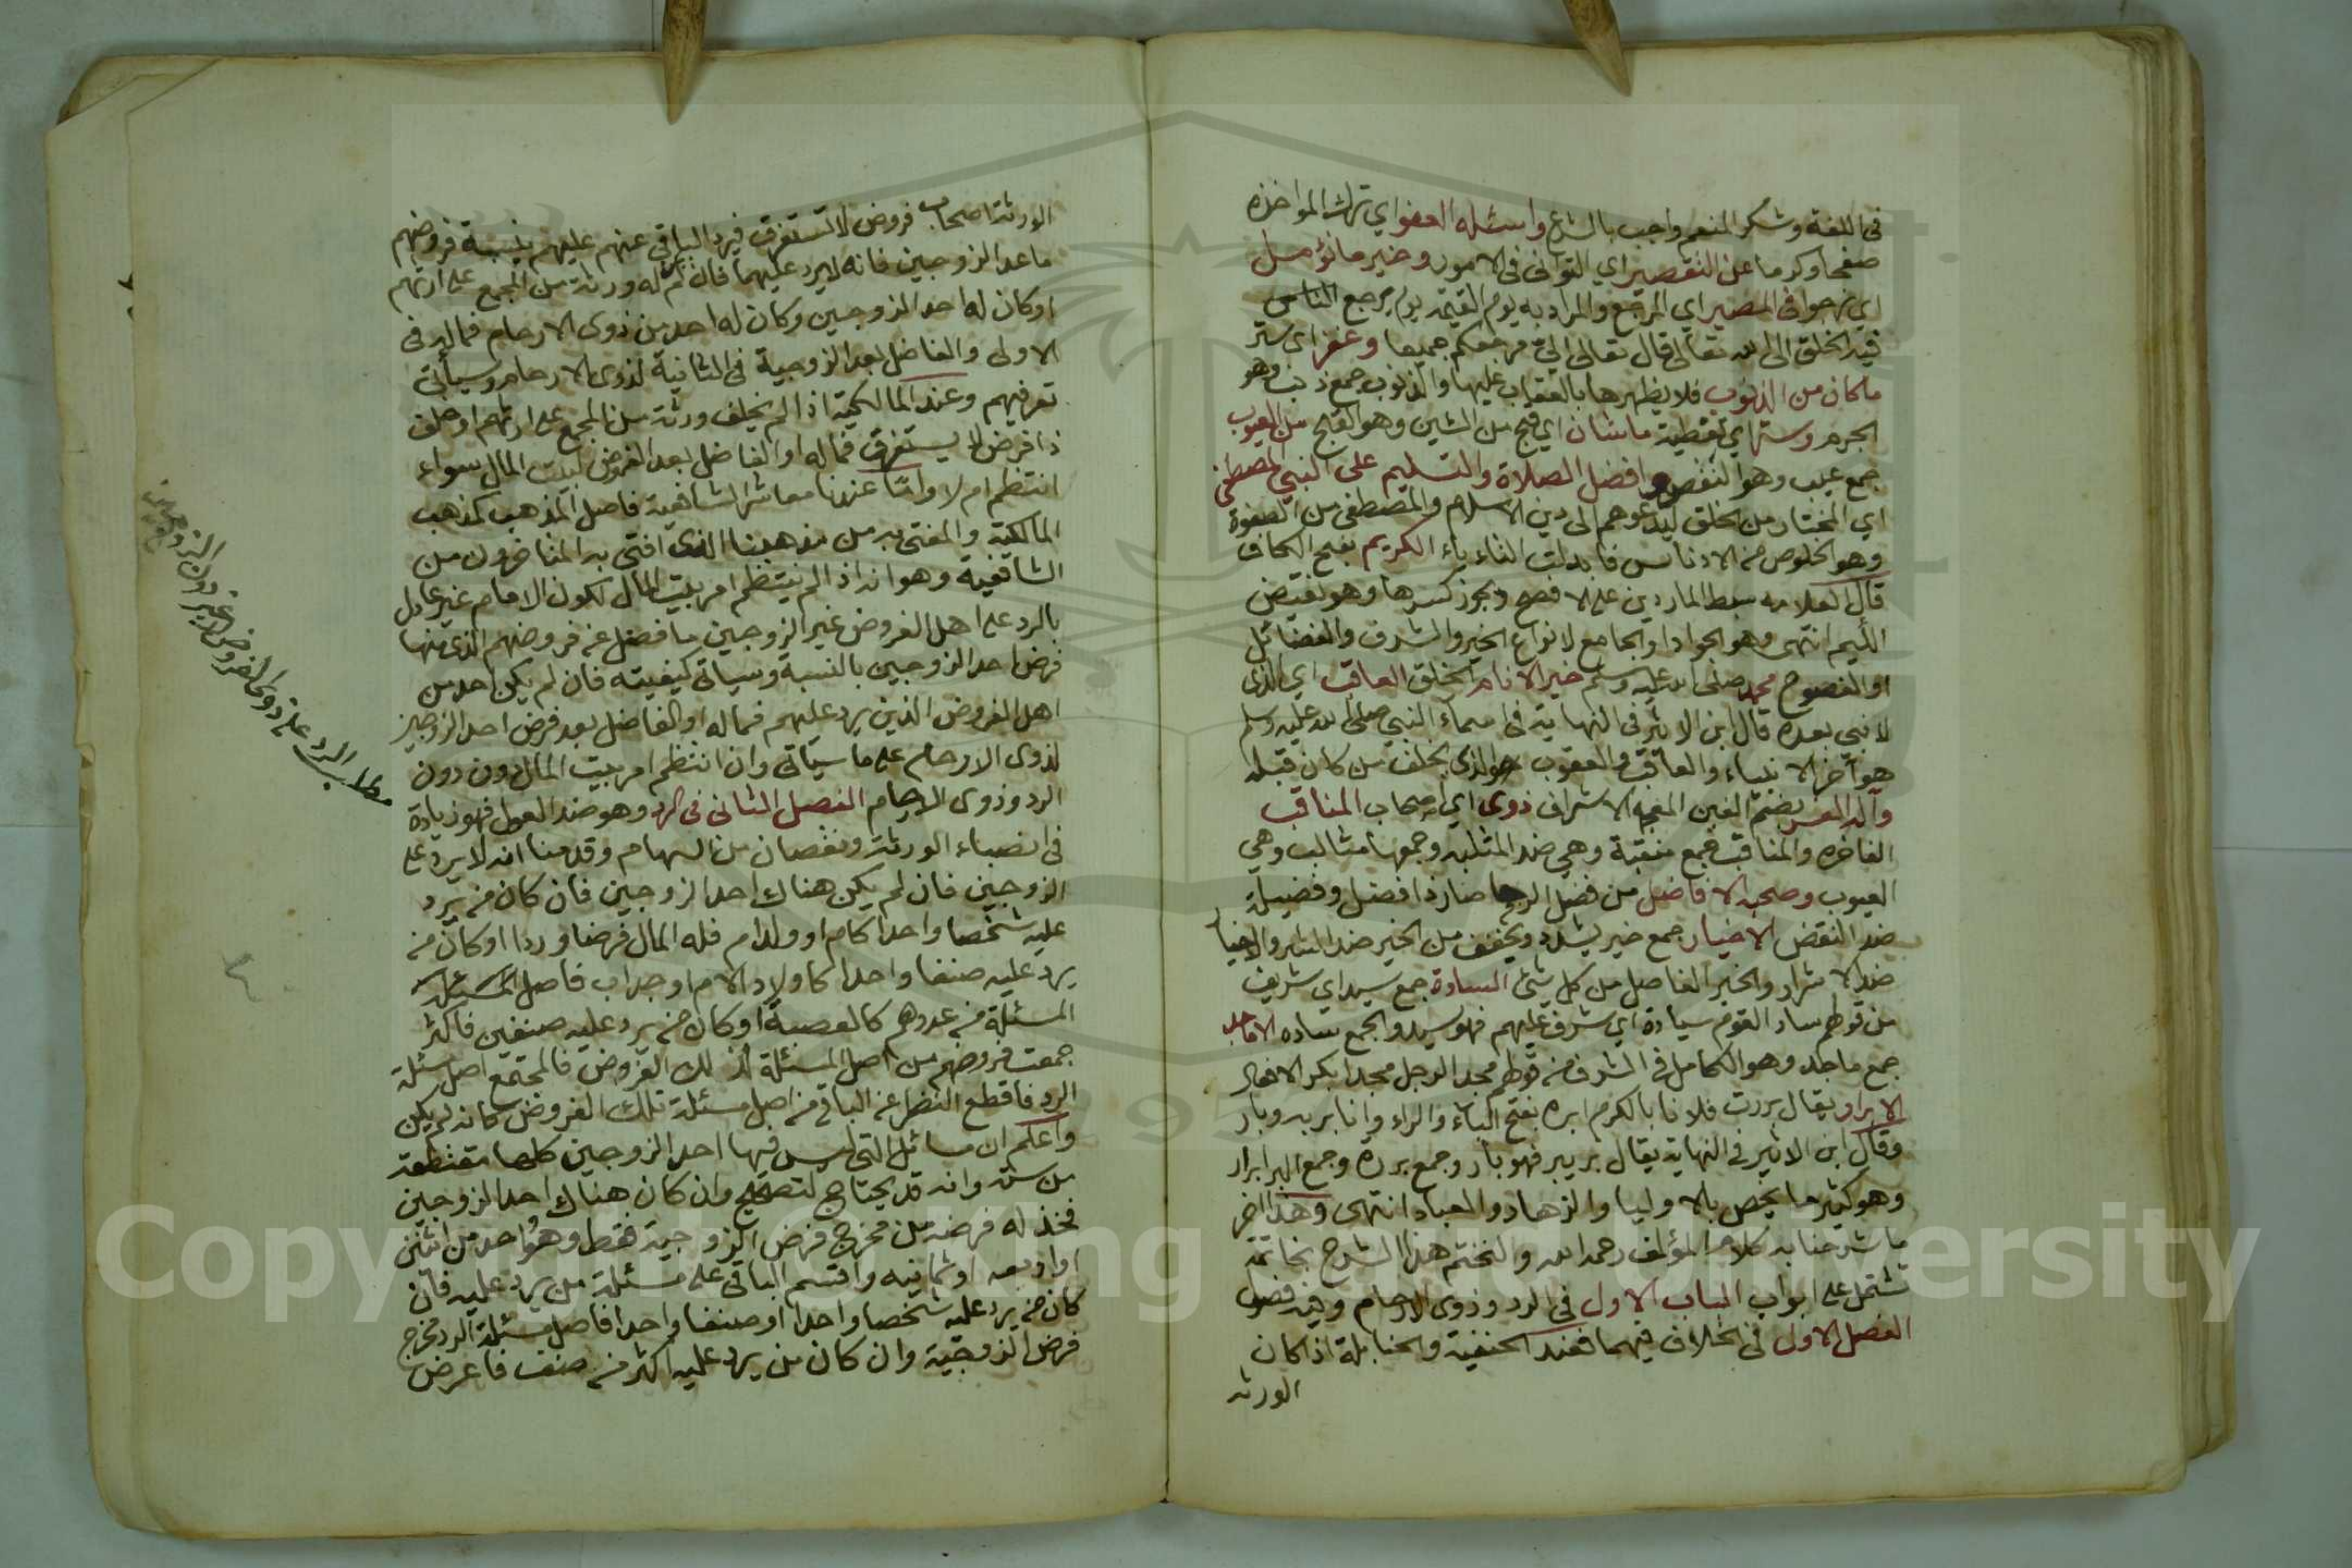 في اللغة وشكر المنعم واجب بالشرع واسئله العفو اي ترك المواخذه
صفحا وكرما عن التقصير اي التواني في الامور وخير ما نؤمل
اي نرجو في المصير اي المرجع والمراد به يوم القيمة يوم يرجع الناس
فيه الخلق الى الله تعالى قال تعالى الي مرجعكم جميعا وغفر اي ستر
ما كان من الذنوب فلا يظهرها بالعقاب عليها والذنوب جمع ذنب وهو
الجرم وستر اي تغطية ما شان اي قبح من الشين وهو القبح من العيوب
جمع عيب وهو النقص وافضل الصلاة والتسليم على النبي المصطفى
اي المختار من الخلق ليدعوهم الى دين الاسلام والمصطفى من الصفوة
وهو الخلوص من الادناس فابدلت التاء الكريم بفتح الكاف
قال العلامه سبط المارديني على الافصح ويجوز كسرها وهو نقيض
اللئيم انتهى وهو الجواد او الجامع لانواع الخير والشرف والفضائل
او الصفوح محمد صلى الله عليه وسلم خير الانام الخلق العاقب اي الذي
لا نبي بعده قال ابن الاثير في النهاية في اسماء النبي صلى الله عليه وسلم
هو آخر الانبياء والعاقب والعقوب هو الذي يخلف من كان قبله
وآله الغر بضم الغين المعجمه الاشراف ذوي اي اصحاب المناقب
الفاخره والمناقب جمع منقبة وهي ضد المثلبه وجمعها مثالب وهي
العيوب وصحبه الافاضل من فضل الرجل صار ذا فضل وفضيلة
ضد النقص الاخيار جمع خير يشدد ويخفف من الخير ضد الشر والاخيار
ضد الاشرار والخير الفاضل من كل شئ السادة جمع سيد اي شريف
من قولهم ساد القوم سيادة اي شرف عليهم فهو سيد والجمع ساده الاماجد
جمع ماجد وهو الكامل في الشرف من قولهم مجد الرجل مجدا بكر الافعال
الابرار يقال بررت فلانا بالكرم ابره بفتح الباء والراء وانا بر به وبار
وقال ابن الاثير في النهاية يقال بر يبر فهو بار وجمع بررة وجمع البر ابرار
وهو كثير ما يخص بالاوليا والزهاد والعباد انتهى وهذا آخر
ما شرحنا به كلام المؤلف رحمه الله ولنختم هذا الشرح بخاتمة
تشتمل على ابواب الباب الاول في الرد وذوي الارحام وفيه فصول
الفصل الاول في الخلاف فيهما فعند الحنفية والحنابلة اذا كان
الورثه
الورثة اصحاب فروض لا تستغرق فيرد الباقي عنهم عليهم بنسبة فروضهم
ما عدا الزوجين فانه لا يرد عليهما فان لم له ورثة من المجمع على ارثهم
او كان له احد الزوجين وكان له احد من ذوي الارحام فماله في
الاولى والفاضل بعد الزوجية في الثانية لذوي الارحام وسيأتي
تعرفيهم وعند المالكية اذا لم يخلف ورثة من المجمع على ارثهم او خلف
ذا فرض لا يستغرق فماله او الفاضل بعد الفروض لبيت المال سواء
انتظم ام لا واما عندنا معاشر الشافعية فاصل المذهب كمذهب
المالكية والمفتى به من مذهبنا الذي افتى به المتاخرون من
الشافعية وهو انه اذا لم ينتظم امر بيت المال لكون الامام غير عادل
بالرد على اهل الفروض غير الزوجين ما فضل عن فروضهم الذي منها
فرض احد الزوجين بالنسبة وسياتي كيفيته فان لم يكن احد من
اهل الفروض الذين يرد عليهم فماله او الفاضل بعد فرض احد الزوجين
لذوي الارحام على ما سيأتي وان انتظم امر بيت المال دون
الرد وذوي الارحام الفصل الثاني في الرد وهو ضد العول فهو زيادة
في انصباء الورثة ونقصان من السهام وقدمنا انه لا يرد على
الزوجين فان لم يكن هناك احد الزوجين فان كان من يرد
عليه شخصا واحدا كام او ولد ام فله المال فرضا وردا او كان من
يرد عليه صنفا واحدا كاولاد الام او جدات فاصل المسئلة
المسئلة من عددهم كالعصبة او كان من يرد عليه صنفين فاكثر
جمعت فروضهم من اصل المسئلة لتلك الفروض فالمجتمع اصل مسئلة
الرد فاقطع النظر عن الباقي من اصل مسئلة تلك الفروض كانه لم يكن
واعلم ان مسائل التي ليس فيها احد الزوجين كلها مقتطعة
من ستة وانه قد يحتاج لتصحيح وان كان هناك احد الزوجين
فخذ له فرضه من مخرج فرض الزوجية فقط وهو واحد من اثنين
او اربعه او ثمانيه واقسم الباقي على مسئلة من يرد عليه فان
كان من يرد عليه شخصا واحدا او صنفا واحدا فاصل مسئلة الرد مخرج
فرض الزوجية وان كان من يرد عليه اكثر من صنف فاعرض
مطلب الرد على ذوي الفروض دون الزوجين
Copyright © King Saud University